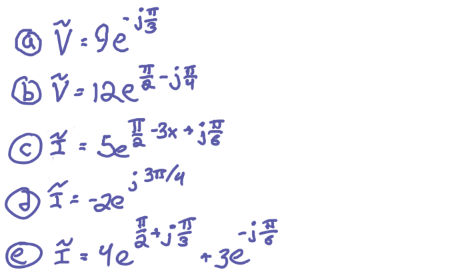 ⓐ Ṽ = 9e^{-jπ/3}
ⓑ Ṽ = 12e^{π/2 - jπ/4}
ⓒ Ĩ = 5e^{π/2 - 3x + jπ/6}
ⓓ Ĩ = -2e^{j3π/4}
ⓔ Ĩ = 4e^{π/2 + jπ/3} + 3e^{-jπ/6}